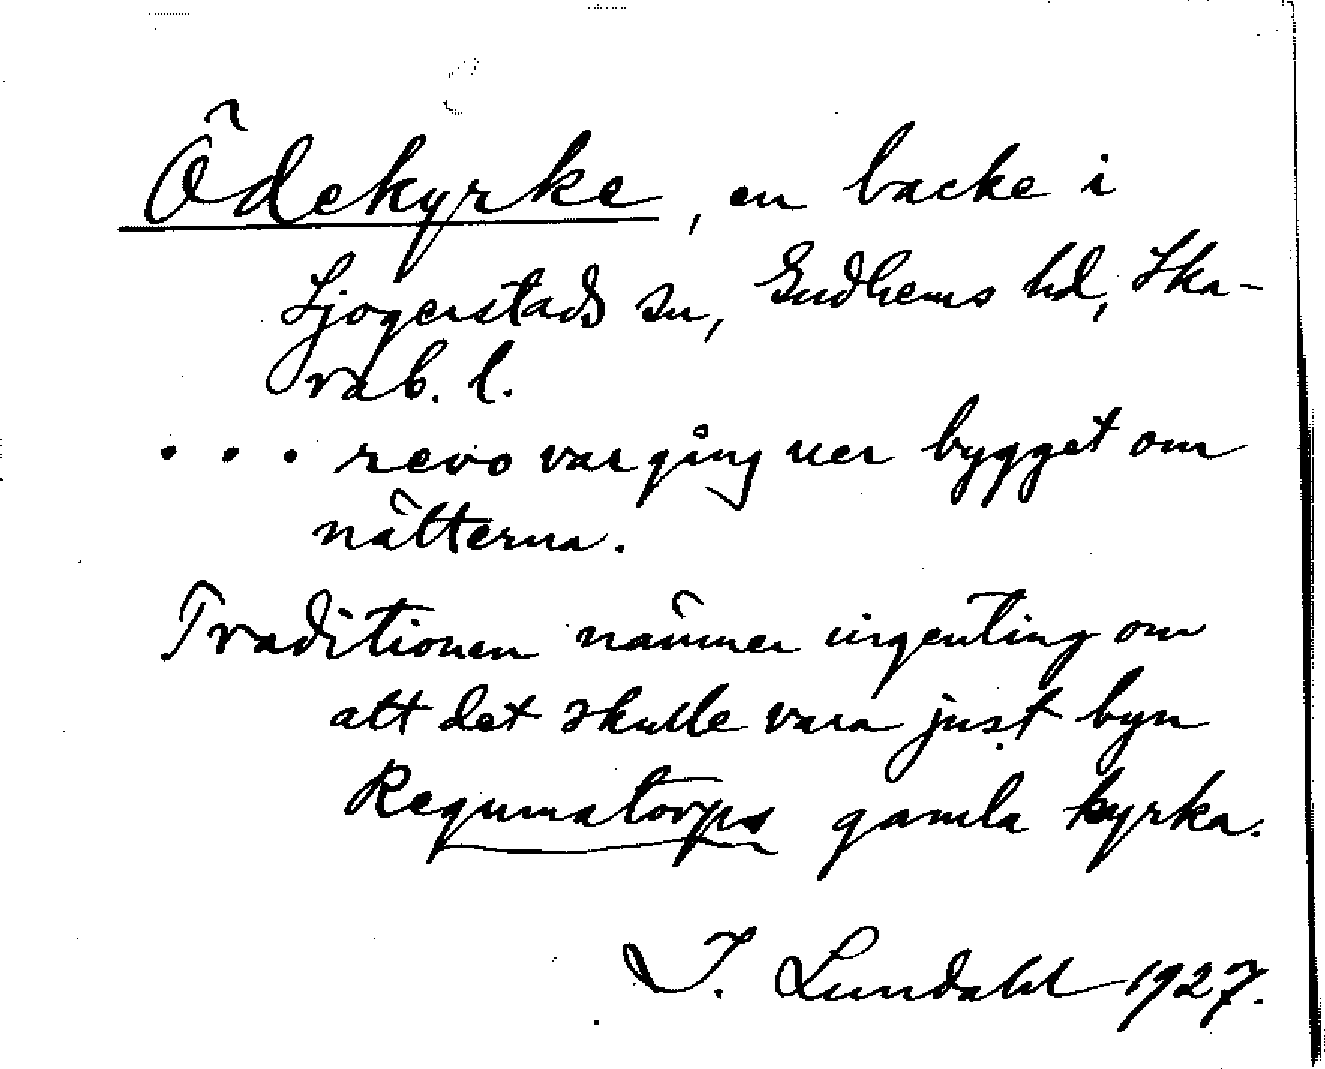 Ödekyrke, en backe i
Sjogerstads sn, Gudhems hd, Ska-
rab. l.
. . . revo var gång ner bygget om
nätterna.
Traditionen nämner ingenting om
att det skulle vara just byn
Regumatorps gamla kyrka.
I. Lundahl 1927.